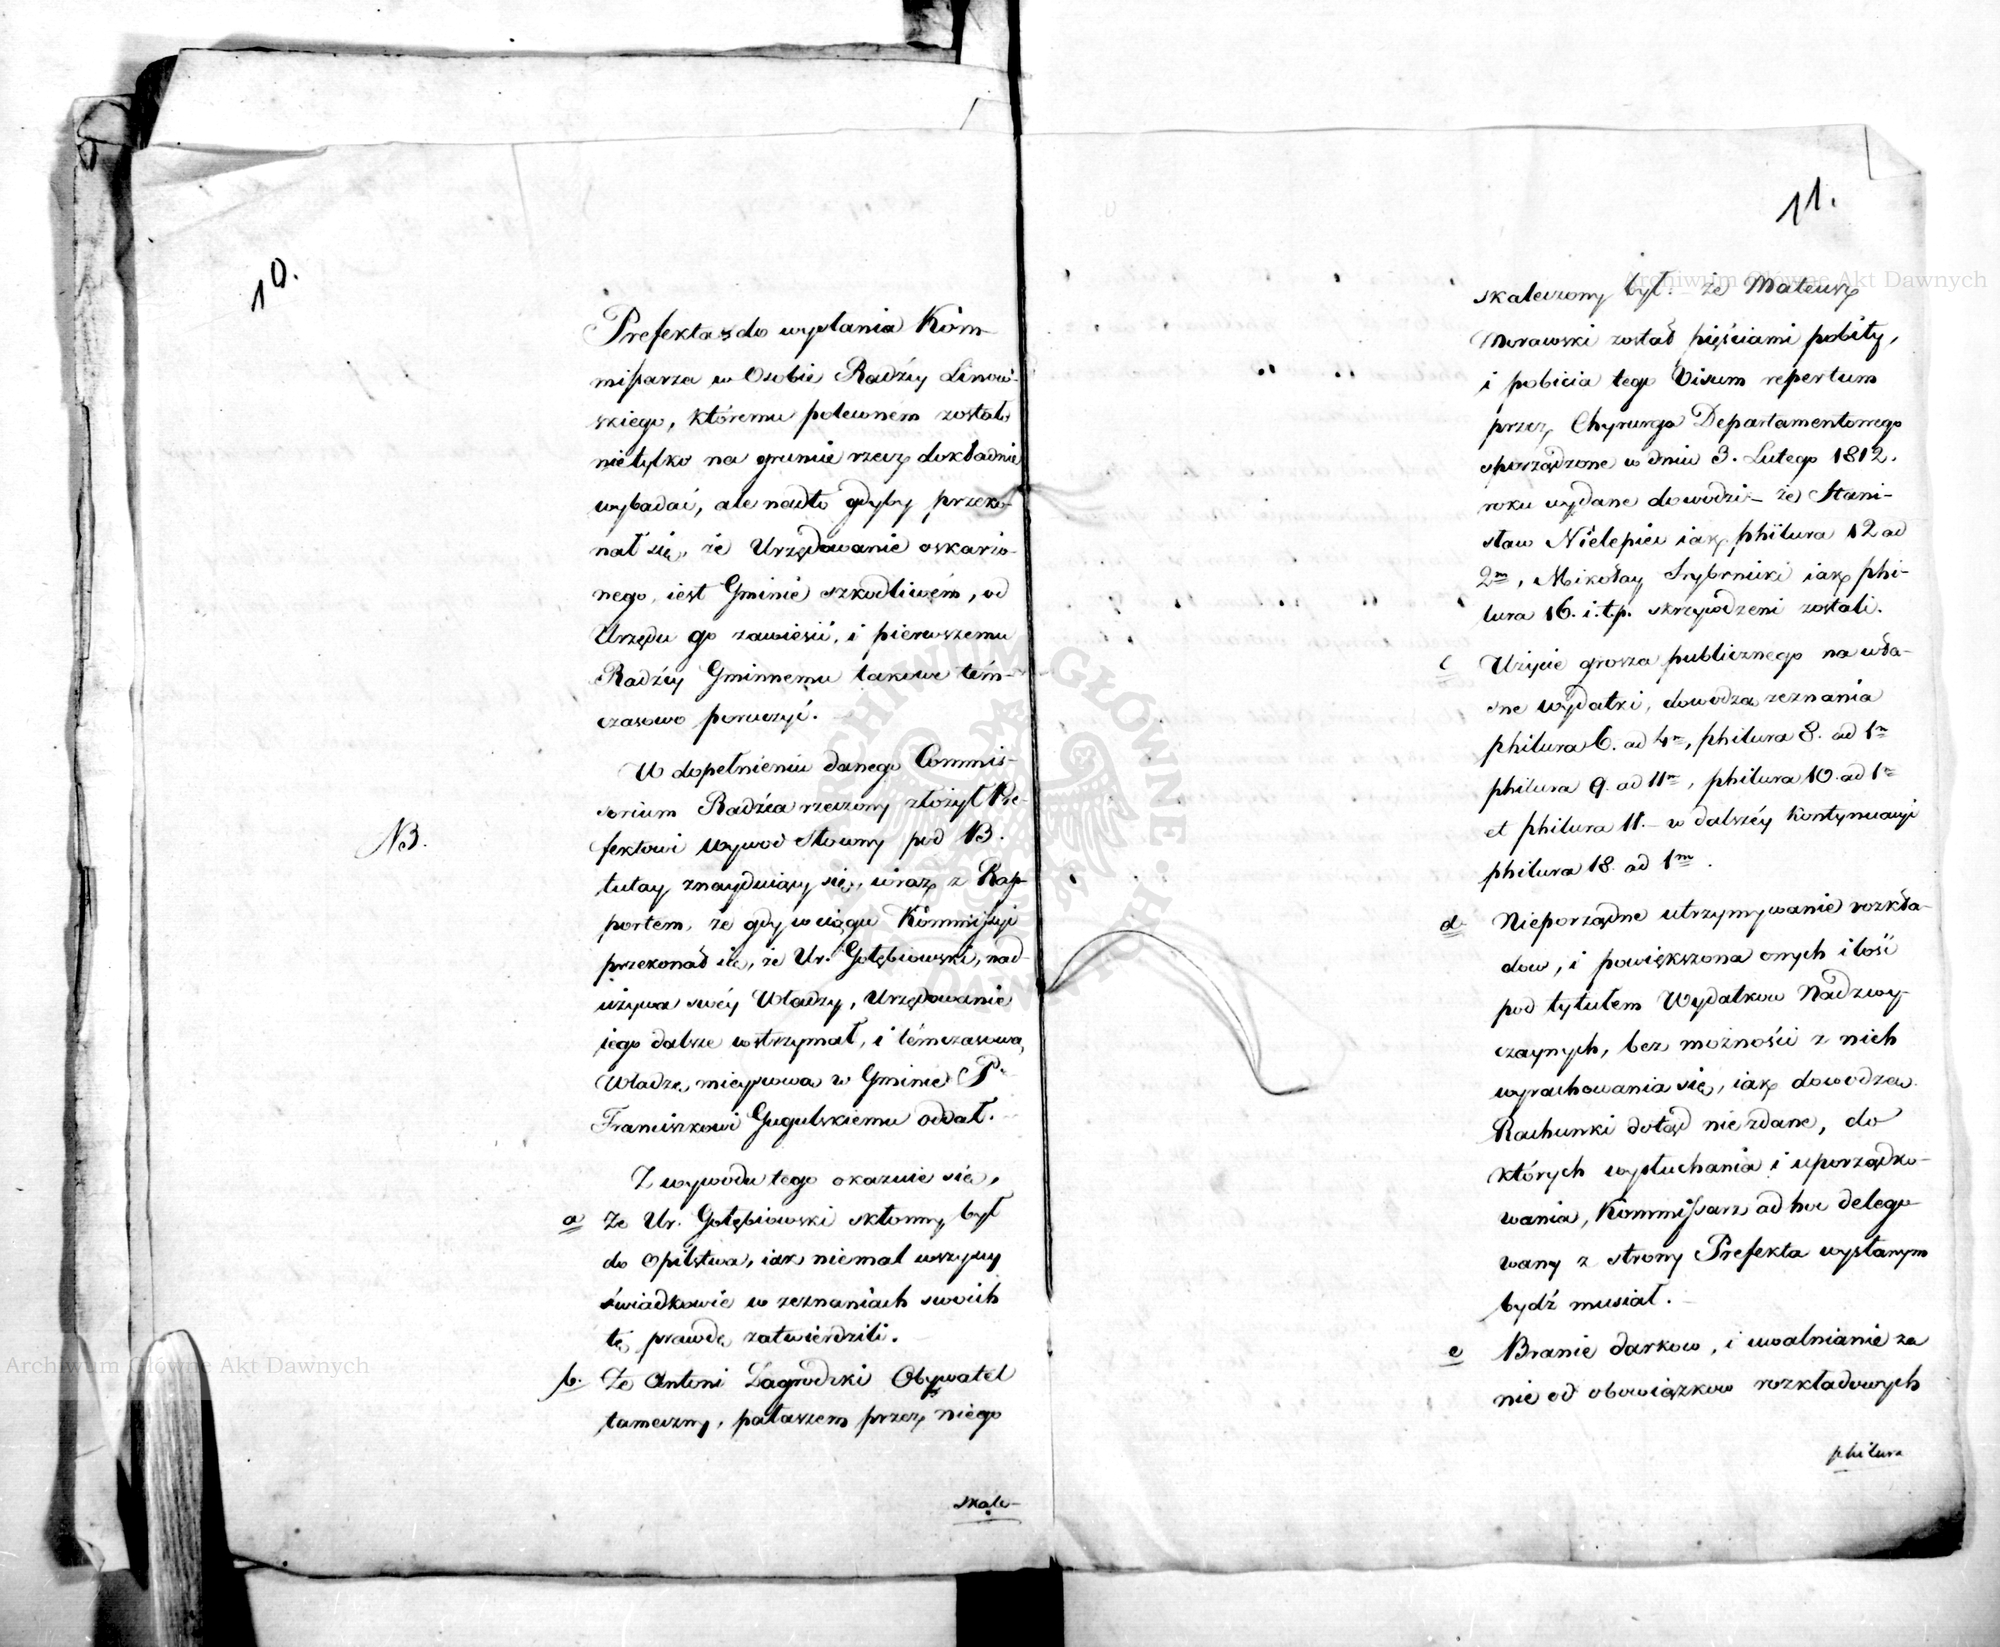 10.
Prefekta do wysłania Kom-
missarza w Osobie Radźcy Linow-
skiego, któremu poleconem zostało
nietylko na gruncie rzecz dokładnie
wybadać, ale nadto gdyby przeko-
nał się, że Urzędowanie oskarżo-
nego, iest Gminie szkodliwém, od
Urzędu go zawiesić, i pierwszemu
Radźcy Gminnemu takowe tém-
czasowo poruczyć.
W dopełnieniu danego Commis-
sorium Radźca rzeczony złożył Pre-
fektowi Wywod Słowny pod B.
NB.
tutay znayduiący się, wraz z Rap-
portem, że gdy w ciągu Kommissyi
przekonał się, że Ur. Gołębiowski, nad-
używa swéy Władzy, Urzędowanie
iego dalsze wstrzymał, i témczasową
Władzę mieyscową w Gminie P.
Franciszkowi Gugulskiemu oddał.
Z wywodu tego okazuie się,
a Że Ur. Gołębiowski skłonny był
do Opilstwa, iak niemal wszyscy
świadkowie w zeznaniach swoich
tę prawdę zatwierdzili.
b. Że Antoni Zagrodzki Obywatel
tameczny, pałaszem przez niego
skale-
11.
skaleczony był. – że Mateusz
Morawski został pięściami pobity,
i pobicia tego Visum repertum
przez Chyrurga Departamentowego
sporządzone w dniu 3. Lutego 1812.
roku wydane dowodzi – że Stani-
sław Nielepiec iak philura 12 ad
2m, Mikołay Srybrnicki iak phi-
lura 16. i.t.p. skrzywdzeni zostali.
c Użycie grosza publicznego na wła-
sne wydatki, dowodzą zeznania
philura 6. ad 4m, philura 8. ad 1m
philura 9. ad 11m, philura 10. ad 1m
et philura 11. – w dalszéy kontynuacyi
philura 18 ad 1m.
d. Nieporządne utrzymywanie rozkła-
dow, i powiększona onych ilość
pod tytułem Wydatkow Nadzwy-
czaynych, bez możności z nich
wyrachowania się, iak dowodzą
Rachunki dotąd nie zdane, do
których wysłuchania i uporządko-
wania, Kommissarz ad hoc delego-
wany z strony Prefekta wysłanym
bydź musiał.
e Branie darkow, i uwalnianie za
nie od obowiązkow rozkładowych
philura
Archiwum Główne Akt Dawnych
Archiwum Główne Akt Dawnych